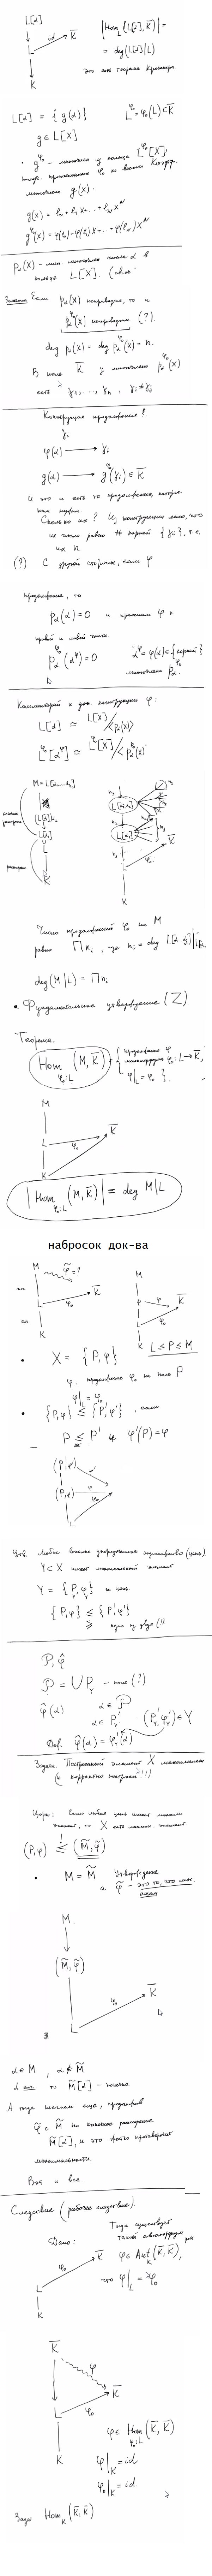 L[α]
id
K̄
L
K
|Hom_L (L[α], K̄)| =
= deg (L[α]|L)
Это есть теорема Кронекера.
L[α] = { g(α) }
L^φ₀ = φ₀(L) ⊂ K̄
g ∈ L[X]
• g^φ₀ - многочлен из кольца L^φ₀[X],
многочлена g(x).
g(x) = l₀ + l₁X + ... + l_N X^N
g^φ₀(x) = φ(l₀) + φ(l₁)X + ... + φ(l_N) X^N
p_α(X) - мин. многочлен числа α в
кольце L[X].
Если p_α(X) неприводим, то и
p_α^φ₀(X) неприводим (?).
deg p_α(x) = deg p_α^φ₀(x) = n.
В поле K̄ у многочлена p_α^φ₀(x)
есть γ₁, ..., γ_n, γ_i ≠ γ_j
Конструкция продолжения!
γ_i
φ(α) → γ_i
g(α) → g^φ₀(γ_i) ∈ K̄
И это и есть то продолжение, которое
Сколько их? Из конструкции ясно, что
их число равно # корней {γ_i}, т.е.
их n.
(?) С другой стороны, если φ
продолжение, то
p_α(α) = 0 и применим φ к
правой и левой части.
p_α^φ₀(α^φ) = 0
α^φ = φ(α) ∈ {корней}
многочлена p_α^φ₀.
Комментарий к док. конструкции φ:
L[α] ≃ L[X]/<p_α(x)>
L^φ₀[α^φ] ≃ L^φ₀[X]/<p_α^φ₀(x)>
L
K
K̄
φ₀
L
K
Число продолжений φ₀ на M
равно ∏ n_i, где n_i = deg
deg (M|L) = ∏ n_i
• Фундаментальное утверждение (Z)
Теорема.
Hom_{φ₀:L} (M, K̄) = { продолжения φ
φ₀: L → K̄,
φ|_L = φ₀ }.
M
L
φ₀
K̄
K
|Hom_{φ₀:L} (M, K̄)| = deg M|L
набросок док-ва
M
φ̃ = ?
K̄
L
φ₀
K
M
P
φ
K̄
L
φ₀
K
L ≤ P ≤ M
• X = {P, φ}
φ: продолжение φ₀ на поле P
φ|_L = φ₀
• {P, φ} ≤ {P', φ'}, если
P ≤ P' и φ'(P) = φ
(P', φ')
φ'
(P, φ)
φ
φ₀
L
Утв. Любое вполне упорядоченное подмножество (цепь)
Y ⊂ X имеет максимальный элемент
Y = {P_γ, φ_γ} и цепь
{P, φ} ≤ {P', φ'}
≥ одно из двух (!)
P, φ̂
P = ∪ P_γ - поле (?)
φ̂(α)
α ∈ P
α ∈ P'_γ
(P'_γ, φ'_γ) ∈ Y
Def. φ̂(α) = φ'_γ(α)
Задача. Построенный элемент X максимален
(и корректно построен!!!)
Цорн: Если любая цепь имеет максим.
элемент, то X есть максим. элемент.
(P, φ) ≤ (M̃, φ̃)
• M = M̃
Утверждение
а φ̃ - это то, что мы
ищем
M
(M̃, φ̃)
K̄
φ₀
L
α ∈ M, α ∉ M̃
α алг. то M̃[α] - конечно.
А тогда шагнем еще, продолжив
φ̃ с M̃ на конечное расширение
M̃[α], и это противоречит
максимальности.
Вот и все
Следствие (рабочее следствие)
Дано:
φ₀
K̄
L
K
Тогда существует
такой автоморфизм
φ ∈ Aut_K (K̄, K̄),
что φ|_L = φ₀
K̄
φ
K̄
L
φ₀
K
φ ∈ Hom_{φ₀:L} (K̄, K̄)
φ|_K = id
φ₀|_K = id.
Hom_K (K̄, K̄)